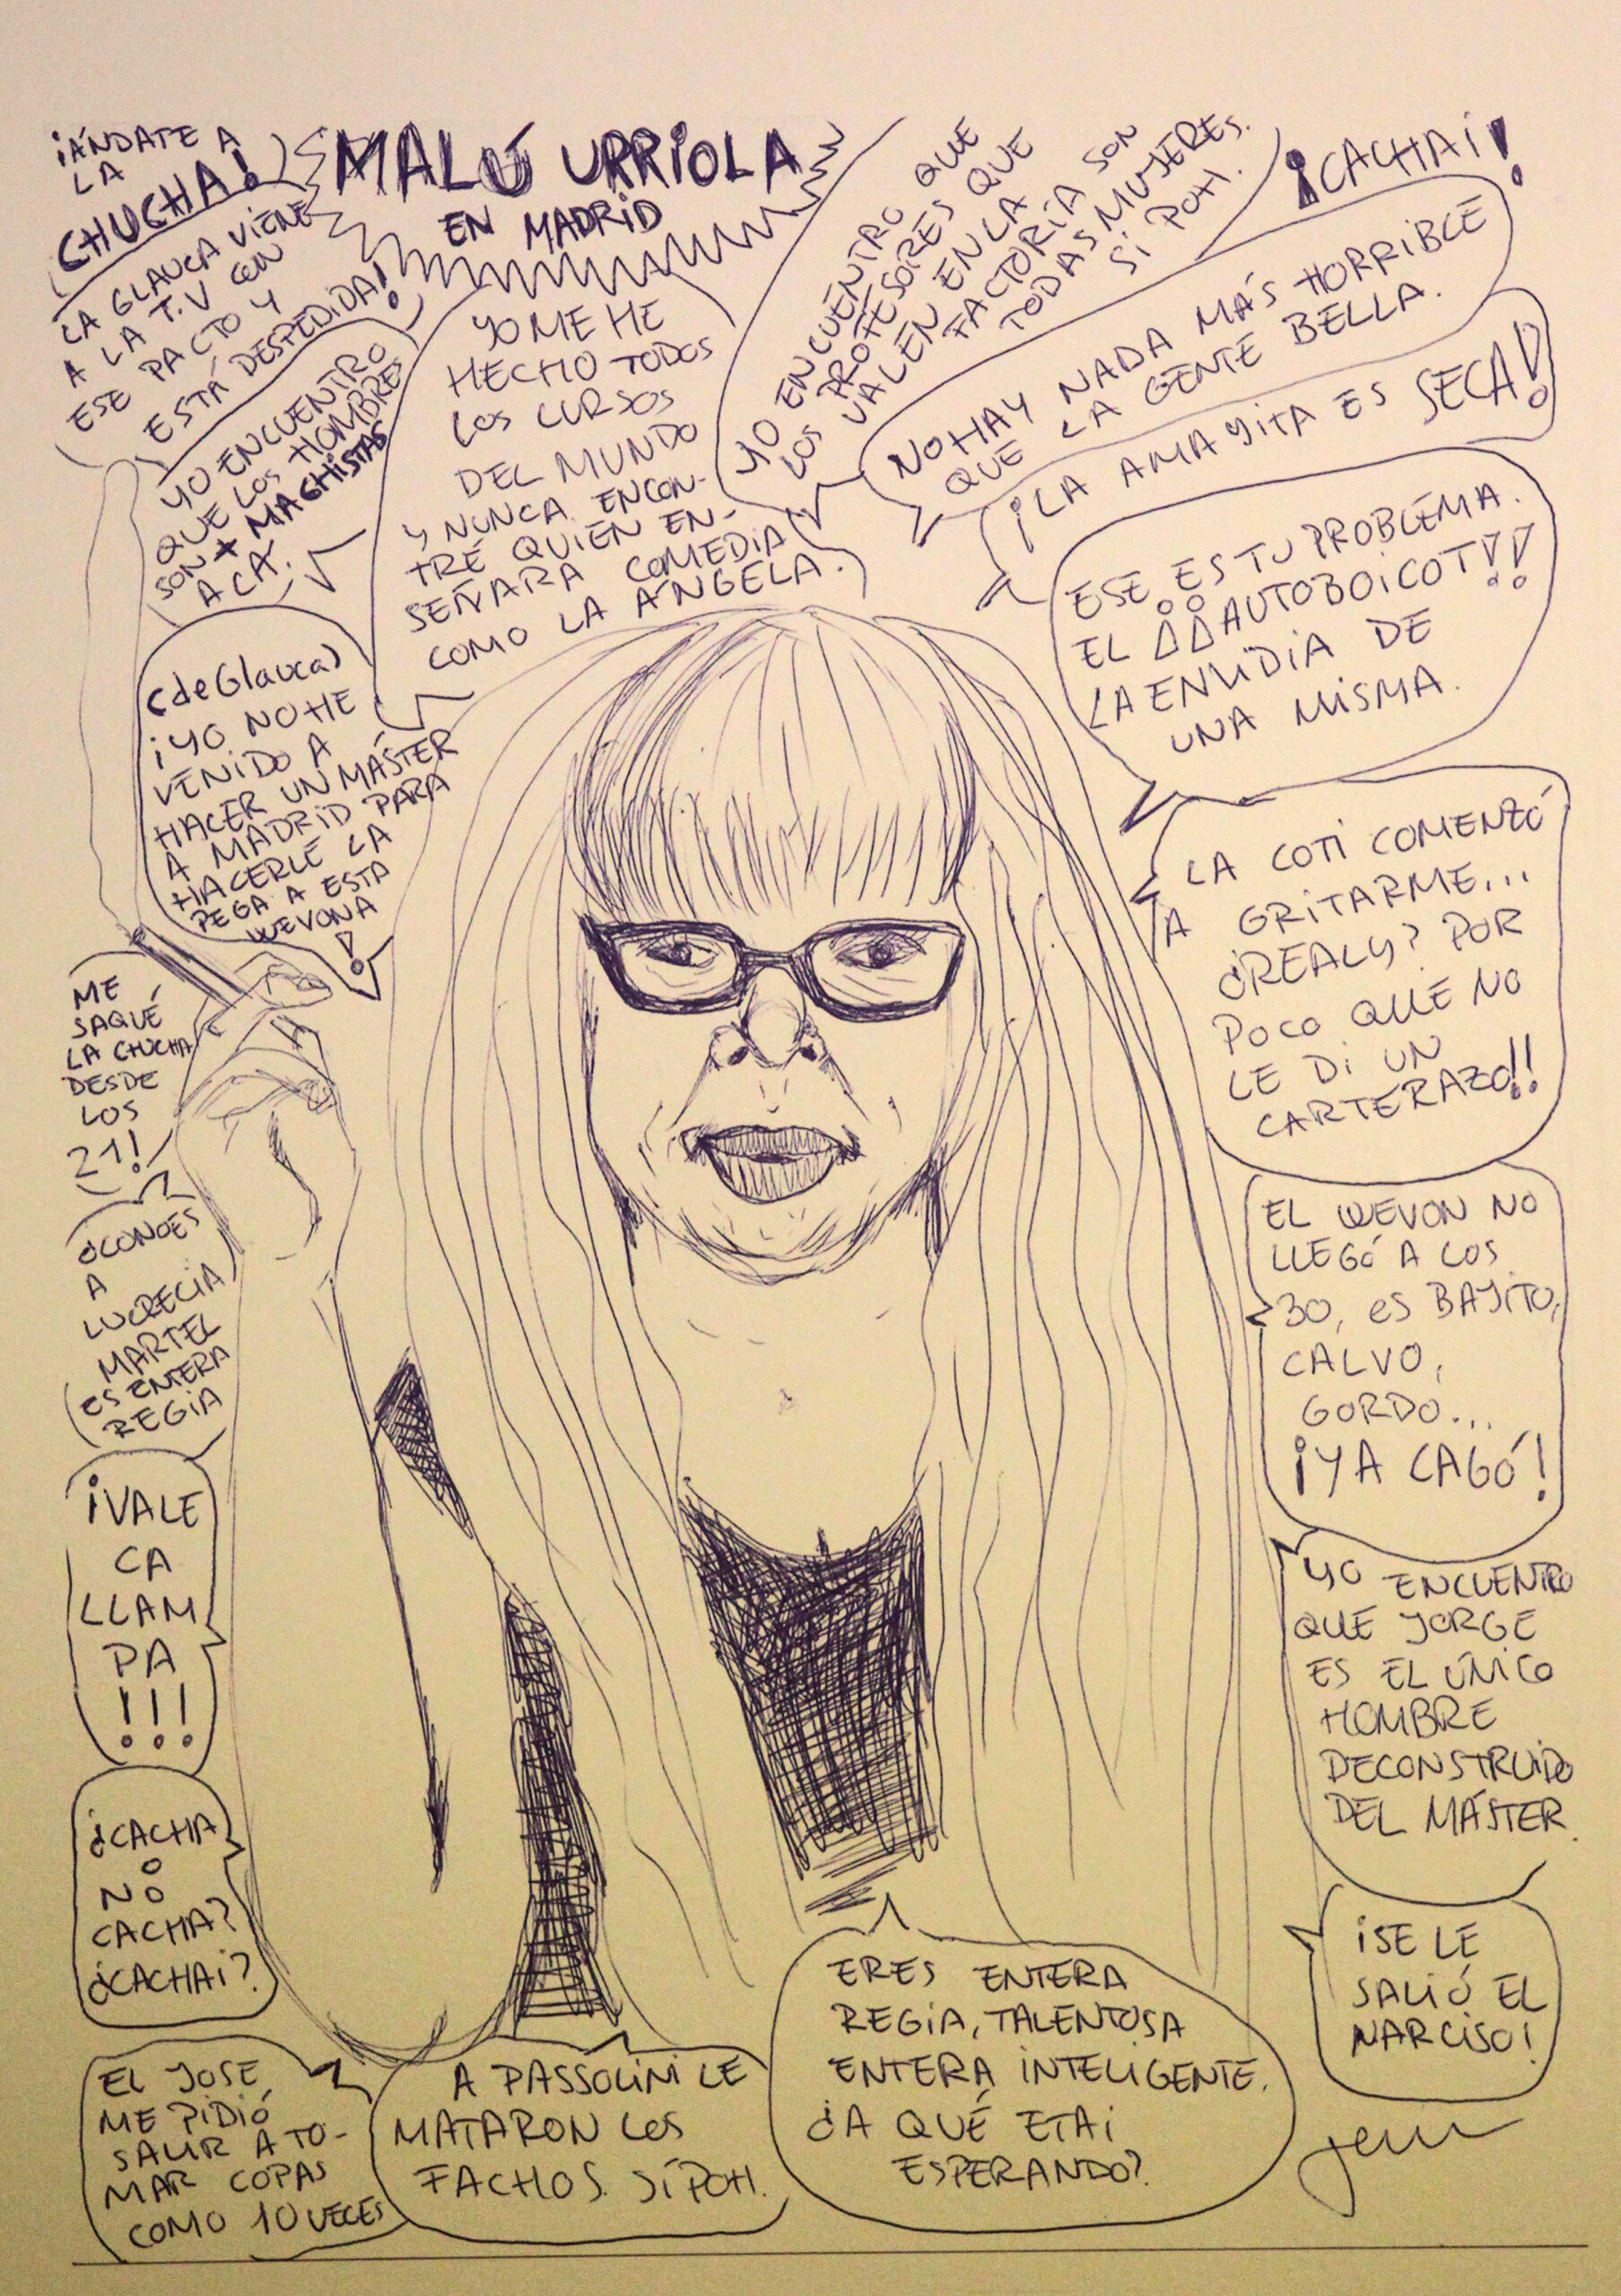 MALÚ URRIOLA
EN MADRID
¡ÁNDATE A
LA
CHUCHA!
LA GLAUCA VIENE
A LA T.V CON
ESE PACTO Y
ESTÁ DESPEDIDA!
YO ENCUENTRO
QUE LOS HOMBRES
SON + MACHISTAS
ACÁ.
YO ME HE
HECHO TODOS
LOS CURSOS
DEL MUNDO
Y NUNCA ENCON-
TRÉ QUIÉN EN-
SEÑARA COMEDIA
COMO LA ÁNGELA.
YO ENCUENTRO QUE
LOS PROFESORES QUE
VALEN EN LA
FACTORÍA SON
TODAS MUJERES.
SI POH.
¡CACHAI!
NO HAY NADA MÁS HORRIBLE
QUE LA GENTE BELLA.
¡LA AMAYITA ES SECA!
ESE ES TU PROBLEMA.
EL ¡¡AUTOBOICOT!!
LA ENVIDIA DE
UNA MISMA.
(de Glauca)
¡YO NO HE
VENIDO A
HACER UN MÁSTER
A MADRID PARA
HACERLE LA
PEGA A ESTA
WEVONA
!
LA COTI COMENZÓ
A GRITARME...
¿REALY? POR
POCO QUE NO
LE DI UN
CARTERAZO!!
ME
SAQUÉ
LA CHUCHA
DESDE
LOS
21!
¿CONOES
A
LUCRECIA
MARTEL
ES ENTERA
REGIA
EL WEVON NO
LLEGÓ A LOS
30, ES BAJITO,
CALVO,
GORDO...
¡YA CAGÓ!
¡VALE
CA
LLAM
PA
!!!
YO ENCUENTRO
QUE JORGE
ES EL ÚNICO
HOMBRE
DECONSTRUIDO
DEL MÁSTER.
¿CACHA
O
NO
CACHA?
¿CACHAI?
¡SE LE
SALIÓ EL
NARCISO!
EL JOSE
ME PIDIÓ
SALIR A TO-
MAR COPAS
COMO 10 VECES
A PASSOLINI LE
MATARON LOS
FACHOS. SÍ POH.
ERES ENTERA
REGIA, TALENTOSA
ENTERA INTELIGENTE.
¿A QUÉ ETAI
ESPERANDO?